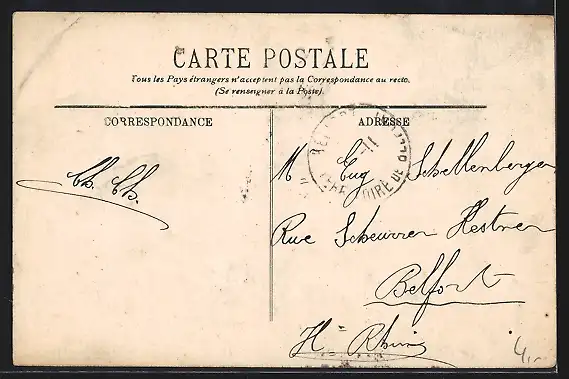 CARTE POSTALE
Tous les Pays étrangers n'acceptent pas la Correspondance au recto.
(Se renseigner à la Poste)
CORRESPONDANCE
ADRESSE
Ch. Ch.
M Eug Schellenberger
Rue Scheurer Kestner
Belfort
Ht Rhin